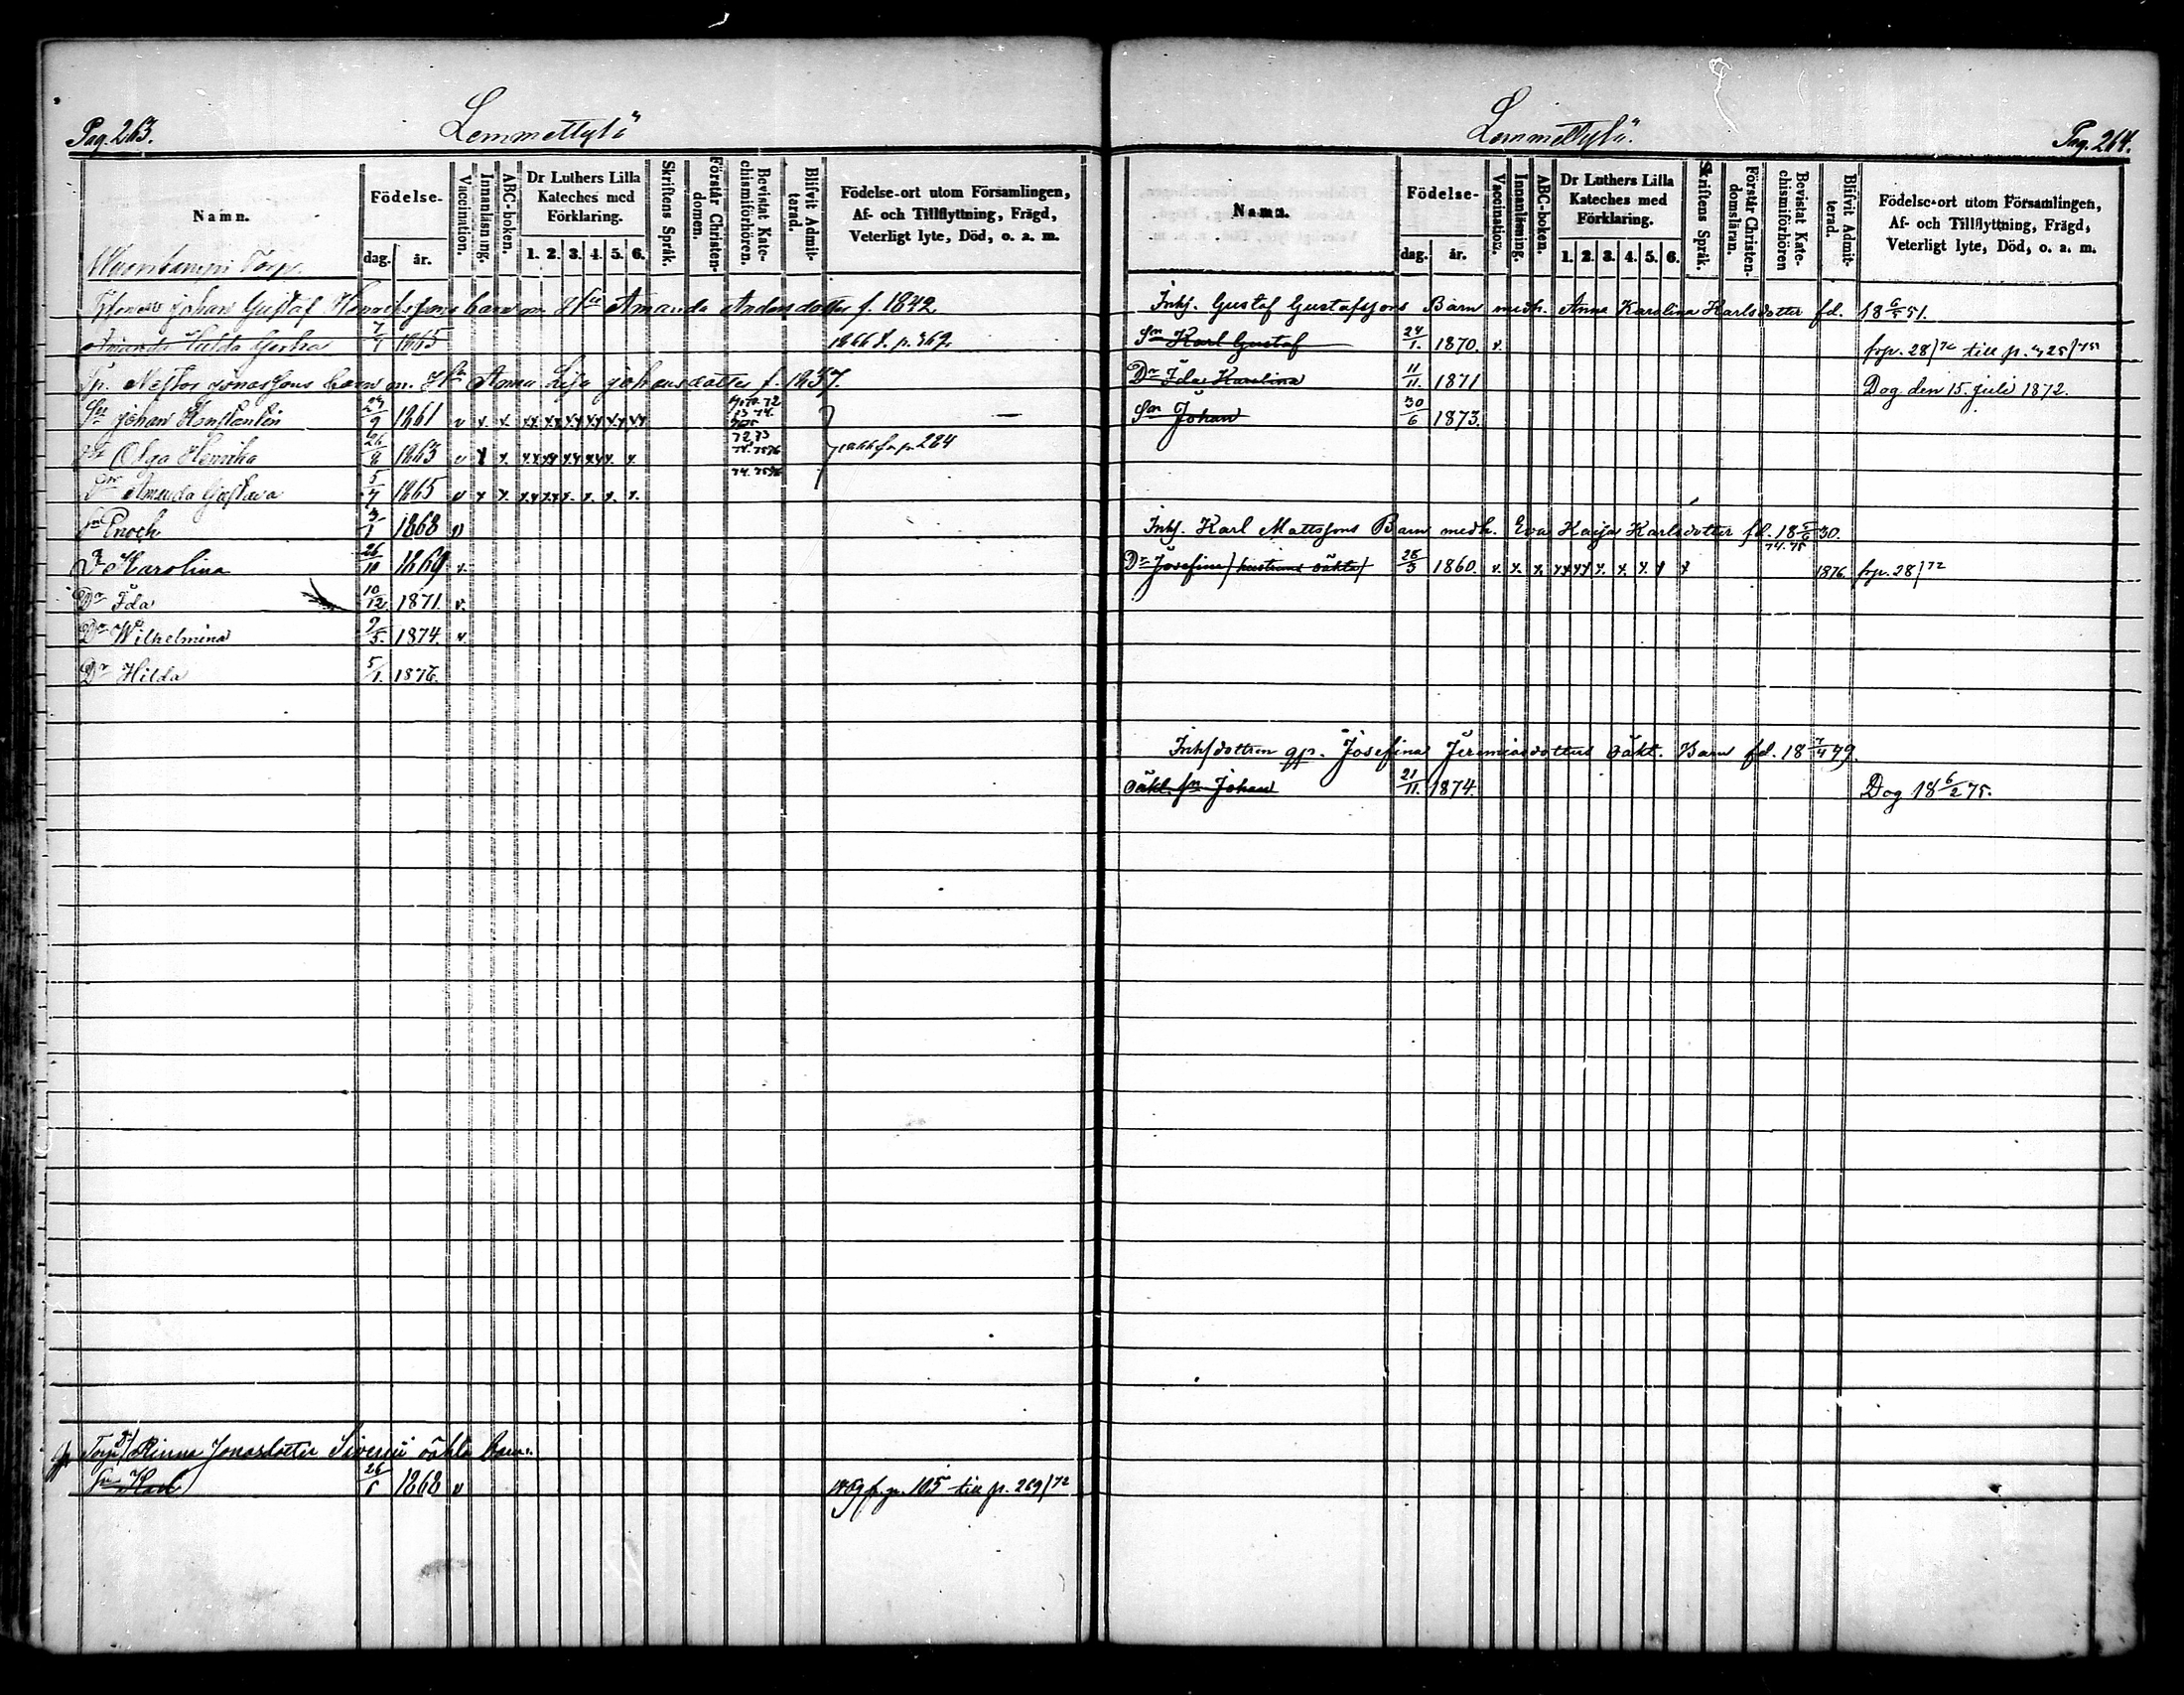 Pag. 263.
Lemmettylä
Namn.
Födelse-
dag.
år.
Vaccination.
Innanläsning.
ABC-boken.
Dr Luthers Lilla
Kateches med
Förklaring.
1. 2. 3. 4. 5. 6.
Skriftens Språk.
Förstår Christen-
domen.
Bevistat Kate-
chismiförhören.
Blifvit Admit-
terad.
Födelse-ort utom Församlingen,
Af- och Tillflyttning, Frägd,
Veterligt lyte, Död, o. a. m.
Torp.
Johan Gustaf Henrikssons barn m. Hu Amanda Andersdotter f. 1842
Amanda Hilda 7/1 1865 1866 t. p. 469.
Nestor Jonassons barn m. Hu Anna Lisa Johansdotter f. 1837.
Sn Johan Konstantin 9 1861 v x. x.
Dr Olga Henrika 26 1863 v x x. 1866 fr. p. 284
Dr Amanda Gustava 5/7 1865 v x x.
Sn Enoch 3/1 1868 v
Dr Karolina 26/10 1869 v.
Dr Ida 10/12 1871 v.
Dr Wilhelmina 9/3. 1874. v.
Dr Hilda 5/1. 1876.
Jonasdotter oäkta barn.
Sn Karl 26 1868 v fr. p. 105 till p. 269/72
Pag. 264.
Lemmettylä.
Namn.
Födelse-
dag.
år.
Vaccination.
Innanläsning.
ABC-boken.
Dr Luthers Lilla
Kateches med
Förklaring.
1. 2. 3. 4. 5. 6.
Skriftens Språk.
Förstår Christen-
domsläran.
Bevistat Kate-
chismiförhören
Blifvit Admit-
terad.
Födelse-ort utom Församlingen,
Af- och Tillflyttning, Frägd,
Veterligt lyte, Död, o. a. m.
Inhs. Gustaf Gustafssons Barn medh. Anna Karolina Karlsdotter fd. 18 6/5 51.
Sn Karl Gustaf 24/1. 1870. v. frp. 28/72 till p. 425/75
Dr Ida Karolina 11/11. 1871 Dog den 15. Juli 1872.
Sn Johan 30/6 1873.
Inhs. Karl Mattssons Barn medh. Eva Kaisa Karlsdotter fd. 18 30.
74. 75
Dr Josefina 25/3 1860. v. x. x. 1876. frp. 28/72
Inhsdottren gp. Josefina Jeremiasdotters oäkt. Barn fd. 18 7/4 49.
Oäkt. sn Johan 21/11. 1874. Dog 18 6/2 75.